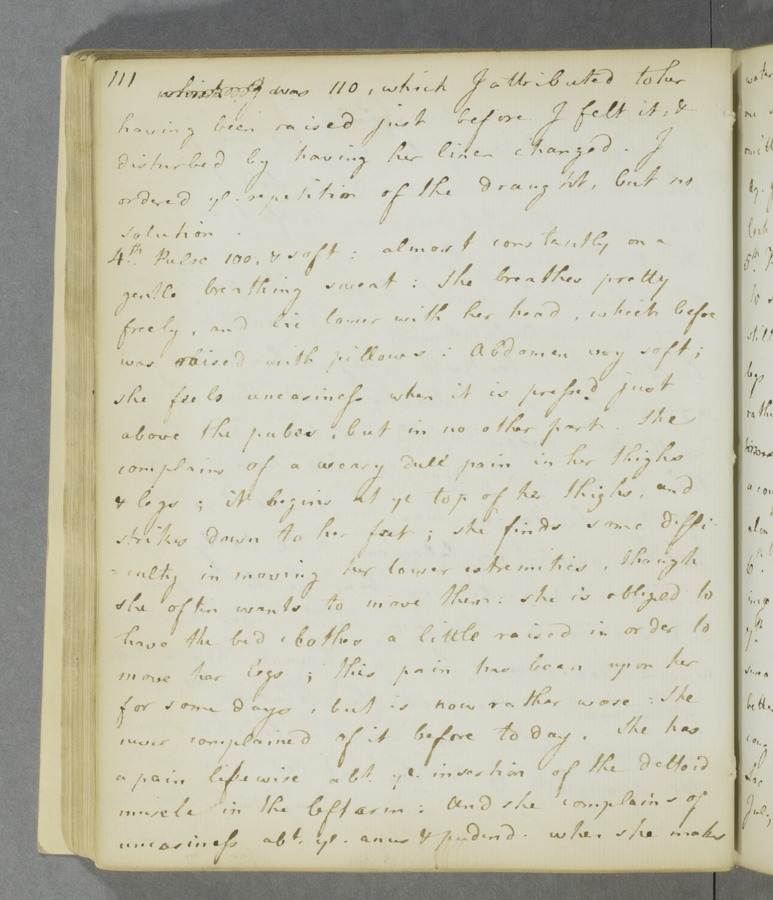 111
was 110, which I attributed to her
having been raised just before I felt it, &
disturbed by having her linen changed. I
ordered ye. repetition of the draught, but no
solution.
4th. Pulse 100, & soft: almost constantly on a
gentle breathing sweat: She breathes pretty
freely, and lie lower with her head, which before
was raised with pillows: Abdomen very soft;
she feels uneasiness when it is pressed just
above the pubes, but in no other part. She
complains of a weary dull pain in her thighs
& legs; it begins at ye top of her thighs, and
strikes down to her feet; she finds some diffi-
=culty in moving her lower extremities, though
she often wants to move them: she is obliged to
have the bed clothes a little raised in order to
move her legs; this pain has been upon her
for some days, but is now rather worse: She
never complained of it before to day. She has
a pain likewise abt. ye. insertion of the deltoid
muscle in the left arm: And she complains of
uneasiness abt. ye. anus & pudend. when she makes